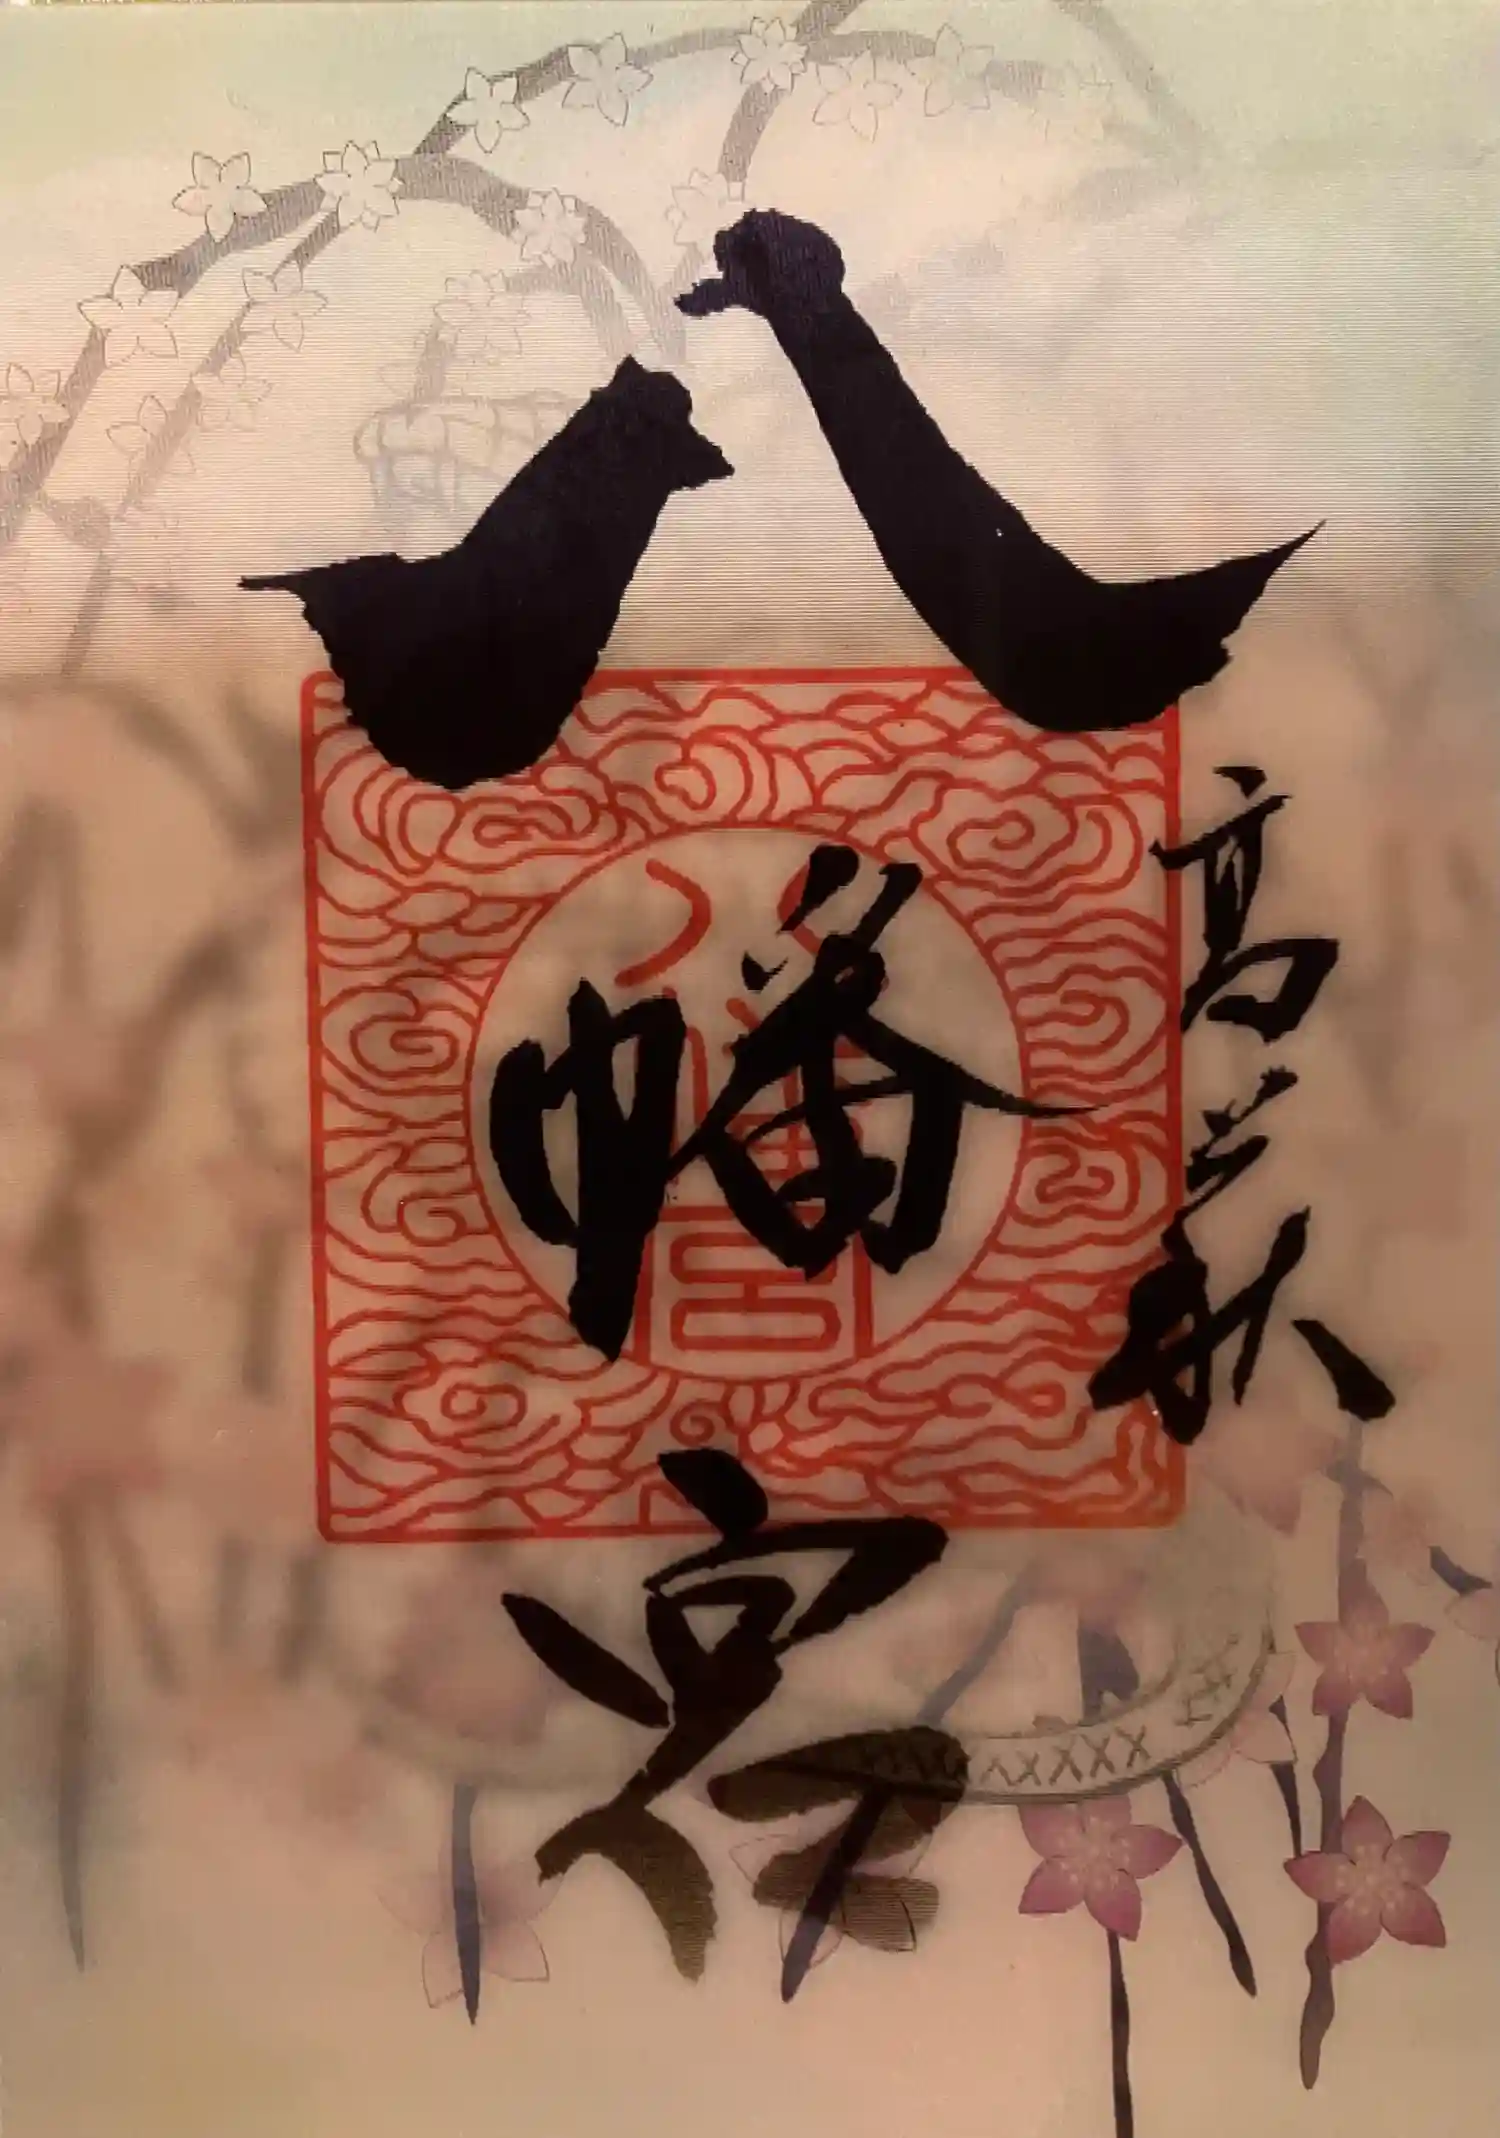 高萩
八幡宮
八幡宮